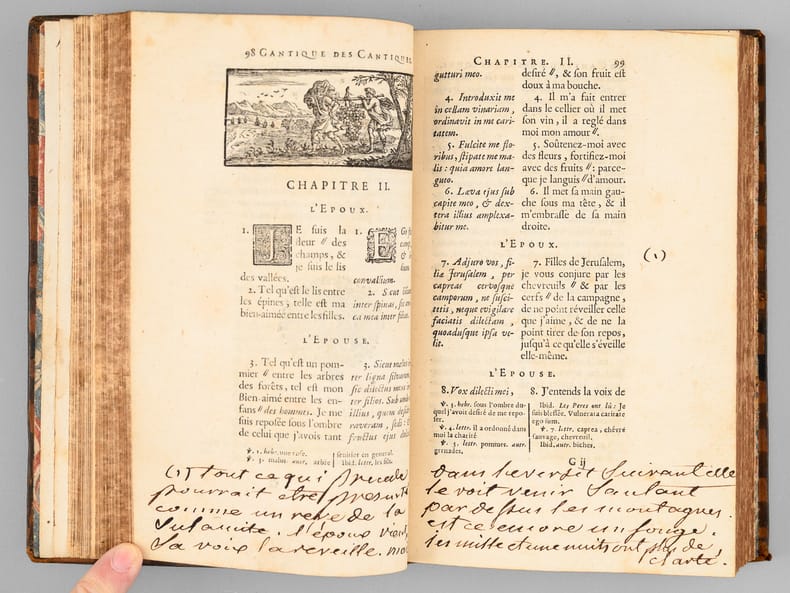 98 CANTIQUE DES CANTIQUES
CHAPITRE II.
L'EPOUX.
1. JE suis la
fleur // des
champs, &
je suis le lis
des vallées.
2. Tel qu'est le lis entre
les épines, telle est ma
bien-aimée entre les filles.
L'EPOUSE.
3. Tel qu'est un pom-
mier // entre les arbres
des forêts, tel est mon
Bien-aimé entre les en-
fans // des hommes. Je me
suis reposée sous l'ombre
de celui que j'avois tant
1. EGo
camp
& l
lium
convallium.
2. Sicut lilium
inter spinas, sic am
ca mea inter fil
3. Sicut malus in
ter ligna silvarum
sic dilectus meus in
ter filios. Sub umbr
illius, quem deside
raveram, sedi: &
fructus ejus dulcis
℣. 1. hebr. une rose.
℣. 3. malus. autr. arbre
fruitier en general.
Ibid. lettr. les fils.
(1) tout ce qui précede
pourrait être presumé
comme un reve de la
Sulamite. l'époux vient,
Sa voix la reveille. mais
CHAPITRE. II. 99
gutturi meo.
4. Introduxit me
in cellam vinariam,
ordinavit in me cari-
tatem.
5. Fulcite me flo-
ribus, stipate me ma-
lis: quia amore lan-
gueo.
6. Læva ejus sub
capite meo, & dex-
tera illius amplexa-
bitur me.
desiré //, & son fruit est
doux à ma bouche.
4. Il m'a fait entrer
dans le cellier où il met
son vin, il a reglé dans
moi mon amour //.
5. Soûtenez-moi avec
des fleurs, fortifiez-moi
avec des fruits //: parce-
que je languis // d'amour.
6. Il met sa main gau-
che sous ma tête, & il
m'embrasse de sa main
droite.
L'EPOUX.
7. Adjuro vos, fi-
liæ Jerusalem, per
capreas cervosque
camporum, ne susci-
tetis, neque evigilare
faciatis dilectam,
quoadusque ipsa ve-
lit.
7. Filles de Jerusalem,
je vous conjure par les
chevreuils // & par les
cerfs // de la campagne,
de ne point réveiller celle
que j'aime, & de ne la
point tirer de son repos,
jusqu'à ce qu'elle s'éveille
elle-même.
(1)
L'EPOUSE.
8. Vox dilecti mei,
8. J'entends la voix de
℣. 3. hebr. sous l'ombre du-
quel j'avois desiré de me repo-
ser.
℣. 4. lettr. il a ordonné dans
moi la charité
℣. 5. lettr. pommes. autr.
grenades.
Ibid. Les Peres ont lû: Je
suis blessée. Vulnerata caritate
ego sum.
℣. 7. lettr. caprea, chévre
sauvage, chevreuil.
Ibid. autr. biches.
G ij
dans le verset suivant elle
le voit venir Sautant
par dessus les montagnes.
est ce encore un songe.
les mille et une nuits ont plus de
clarté.